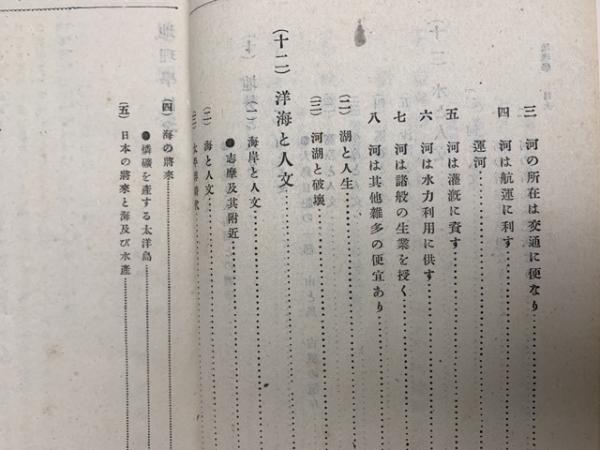 三 河の所在は交通に便なり
四 河は航運に利す
運河
五 河は灌漑に資す
六 河は水力利用に供す
七 河は諸般の生業を授く
八 河は其他雑多の便宜あり
(二) 湖と人生
(三) 河湖と破壊
(十二) 洋海と人文
(一) 海岸と人文
●志摩及其附近
(二) 海と人文
(三) 太平洋時代
(四) 海の將來
●燐礦を産する太洋島
(五) 日本の將來と海及び水產